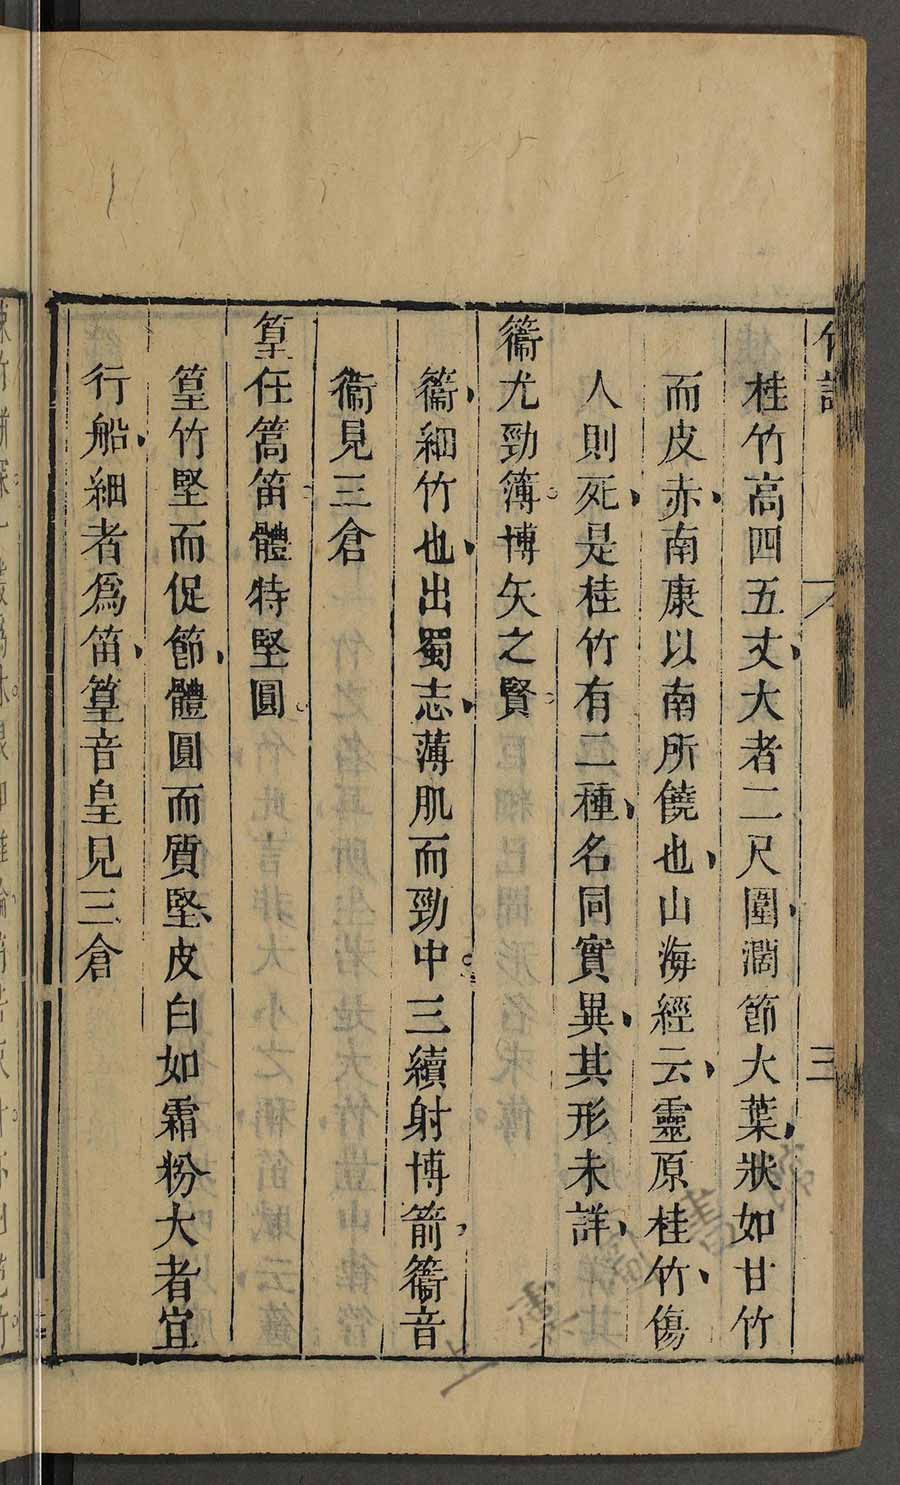 竹譜 三
桂竹高四五丈大者二尺圍濶節大葉狀如甘竹
而皮赤南康以南所饒也山海經云靈原桂竹傷
人則死是桂竹有二種名同實異其形未詳
䉛尤勁簿博矢之賢
䉛細竹也出蜀志薄肌而勁中三續射博箭䉛音
衞見三倉
篁任篙笛體特堅圓
篁竹堅而促節體圓而質堅皮白如霜粉大者宜
行船細者爲笛篁音皇見三倉